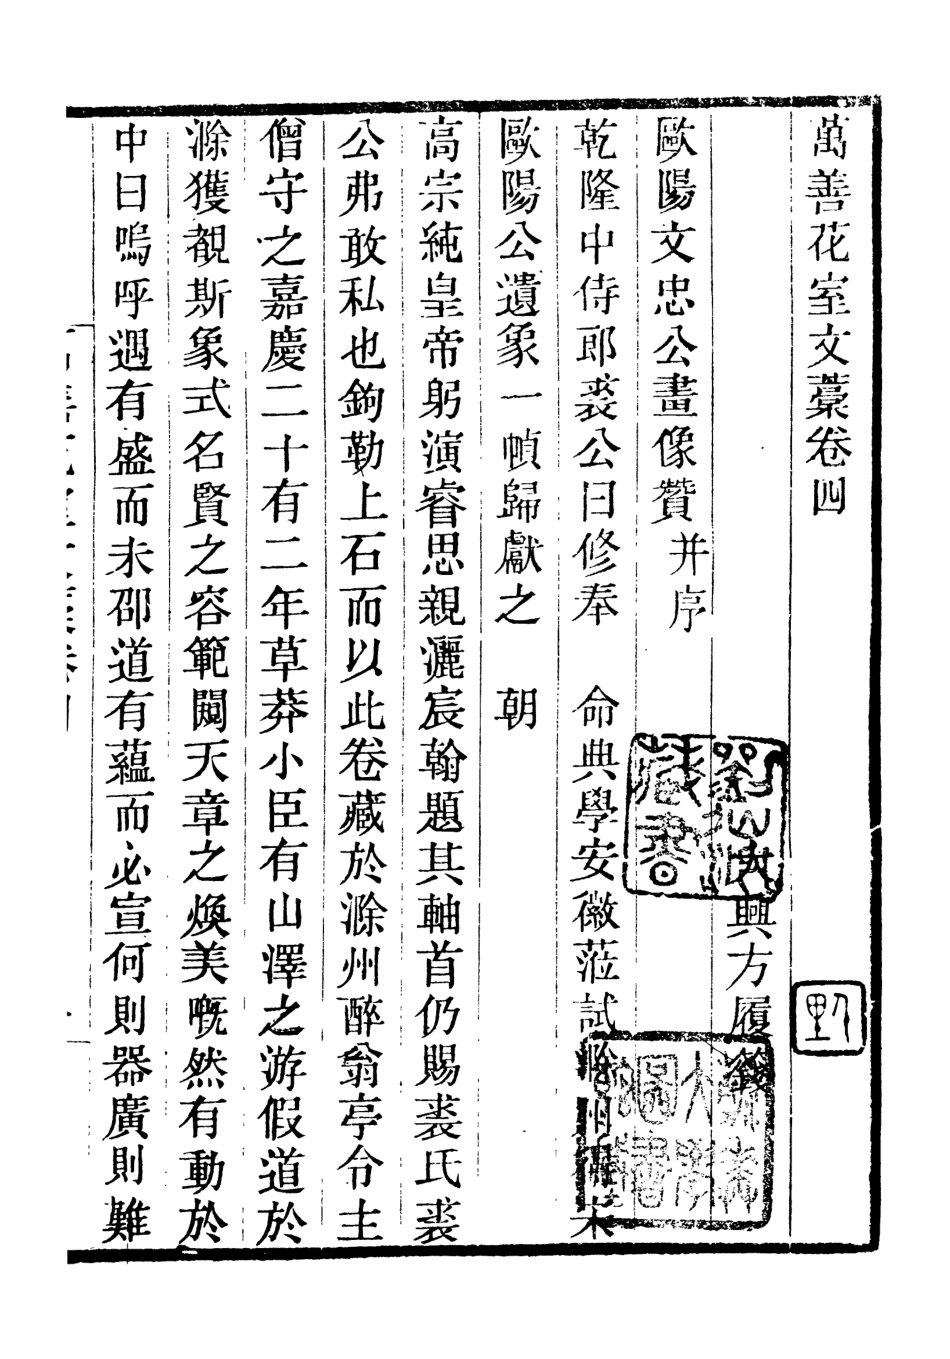 萬善花室文藳卷四
大興方履籛
歐陽文忠公畫像贊 并序
乾隆中侍郎裘公曰修奉 命典學安徽蒞試滁州得宋
歐陽公遺象一幀歸獻之 朝
高宗純皇帝躬演睿思親灑宸翰題其軸首仍賜裘氏裘
公弗敢私也鉤勒上石而以此卷藏於滁州醉翁亭令主
僧守之嘉慶二十有二年草莽小臣有山澤之游假道於
滁獲覩斯象式名賢之容範閱天章之煥美嘅然有動於
中曰嗚呼遇有盛而未卲道有蘊而必宣何則器廣則難